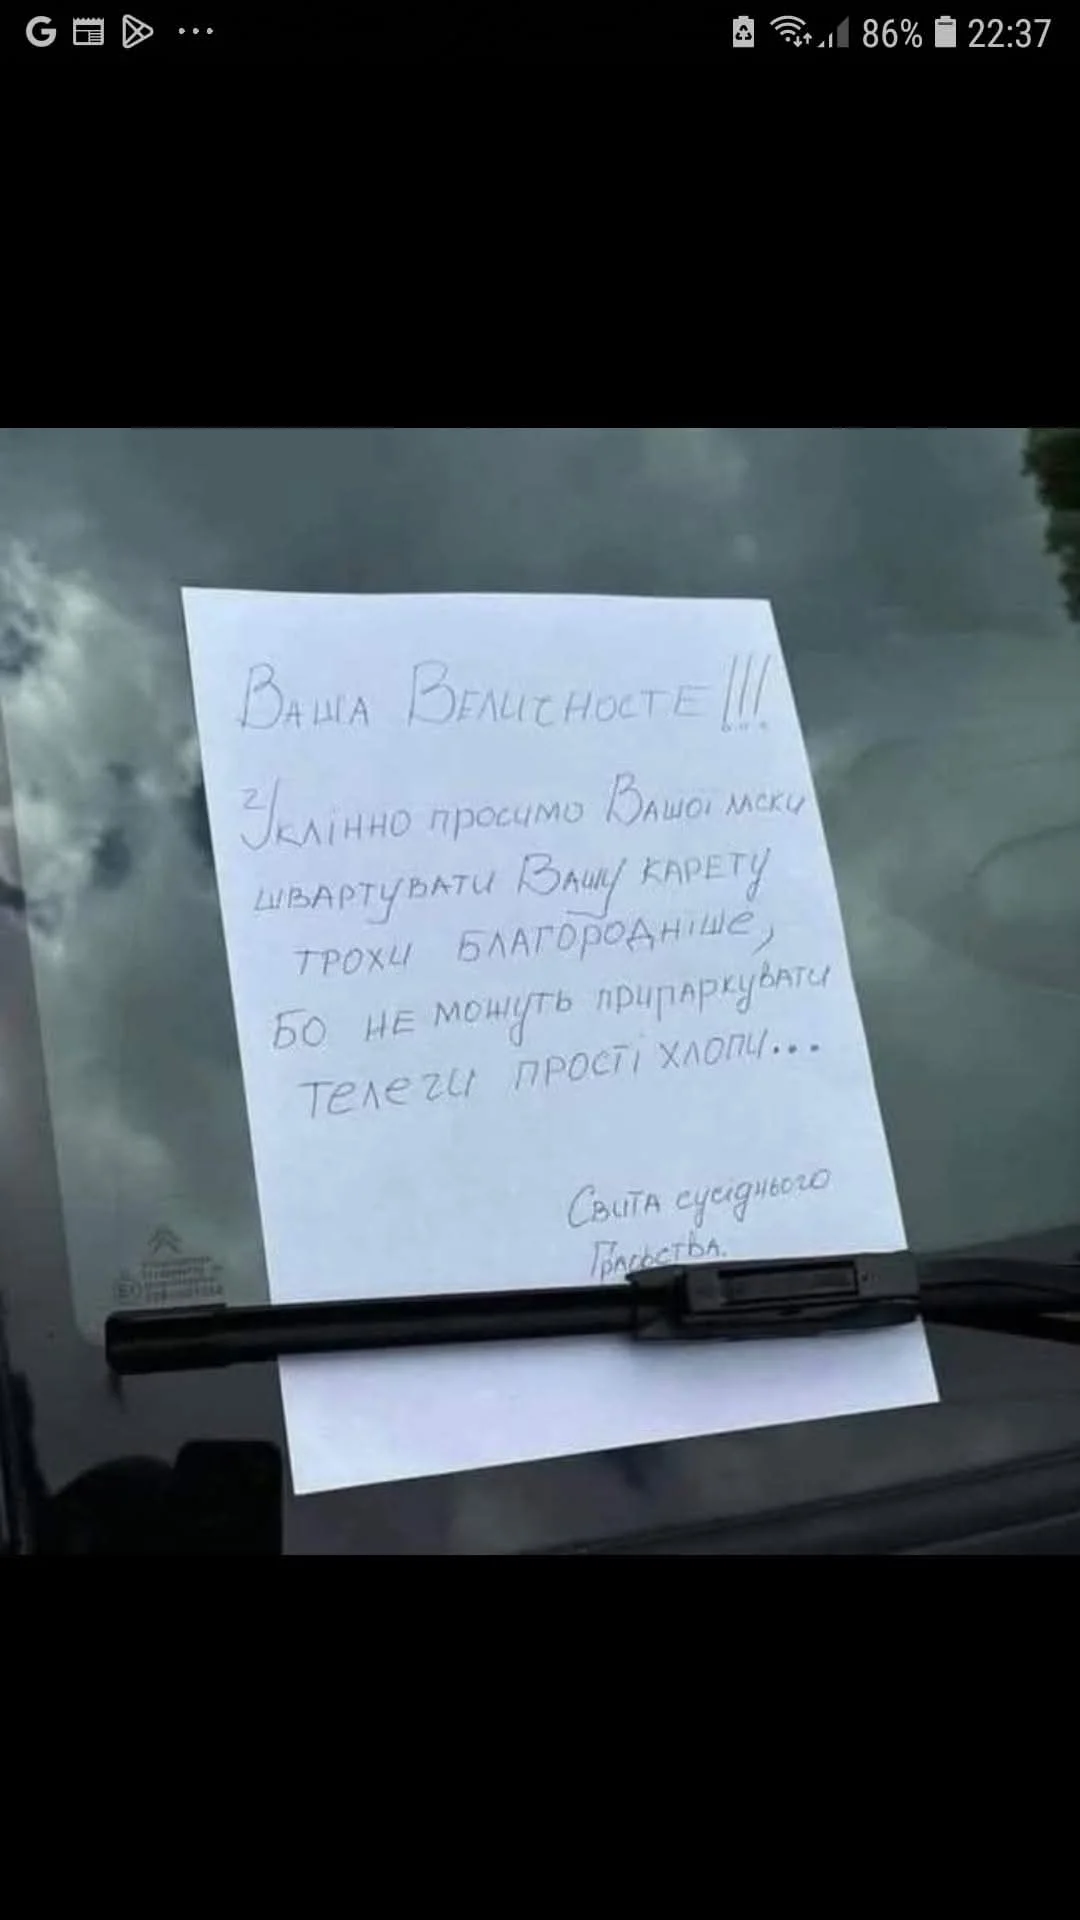 86% 22:37
Ваша Величносте!!!
Уклінно просимо Вашої ласки
швартувати Вашу карету
трохи благородніше,
бо не можуть припаркувати
телеги прості хлопи...
Свита сусіднього